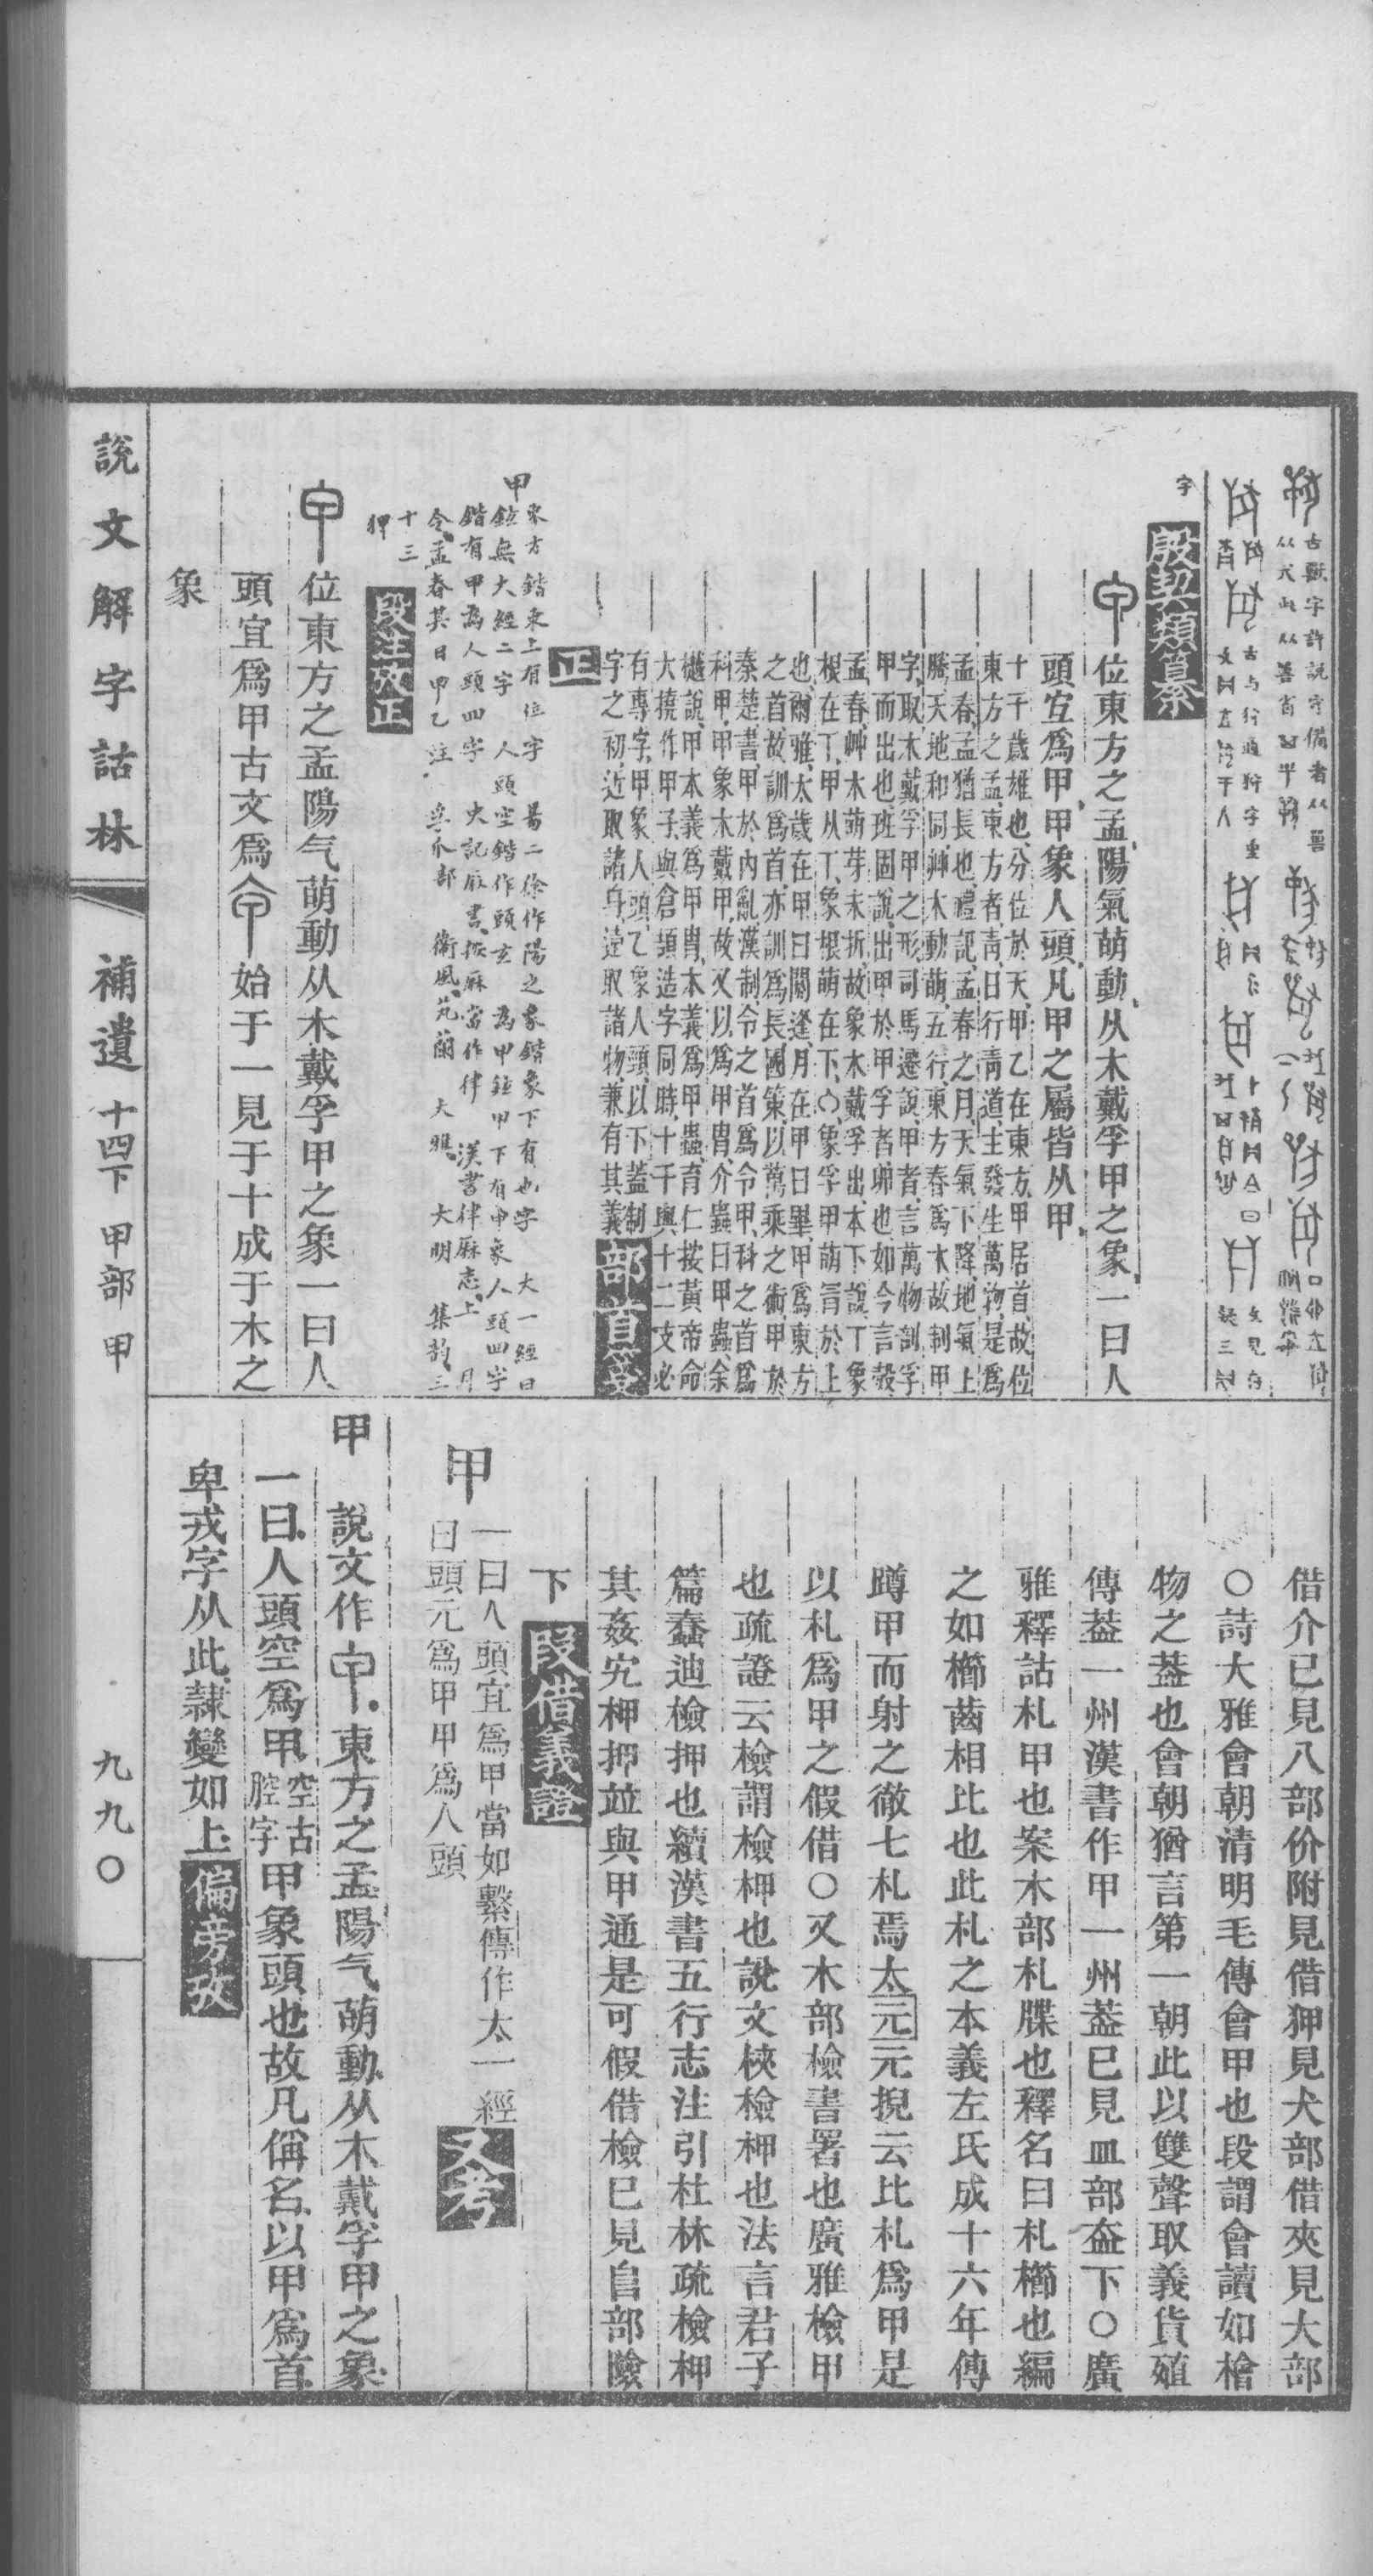 古獸字許說守備者从嘼
从犬此从
字
殷契類纂
位東方之孟陽氣萌動从木戴孚甲之象一曰人
頭宐爲甲甲象人頭凡甲之屬皆从甲
十干歲雄也分位於天甲乙在東方甲居首故位
東方之孟東方者靑日行靑道主發生萬物是爲
孟春孟猶長也禮記孟春之月天氣下降地氣上
騰天地和同艸木動萌五行東方春爲木故制甲
字取木戴孚甲之形司馬遷說甲者言萬物剖孚
甲而出也班固說出甲於甲孚者卵也如今言殼
孟春艸木萌芽未折故象木戴孚出本下說丅象
根在丅甲从丅象根萌在下〇象孚甲萌冐於上
也爾雅太歲在甲曰閼逢月在甲曰畢甲爲東方
之首故訓爲首亦訓爲長國策以萬乘之衞甲於
秦楚書甲於內亂漢制令之首爲令甲科之首爲
科甲甲象木戴甲故又以爲甲冑介蟲曰甲蟲余
樾說甲本義爲甲冑本義爲甲蟲育仁按黃帝命
大撓作甲子與倉頡造字同時十干與十二支必
有專字甲象人頭乙象人頭以下蓋制
字之初近取諸身遠取諸物兼有其義
部首
正
甲
東方鍇東上有位字 昜二徐作陽之象鍇象下有也字 大一經曰
鉉無大經二字 人頭空鍇作頭玄 爲甲鉉甲下有甲象人頭四字
鍇有甲爲人頭四字 史記厤書按厤當作律 漢書律厤志上 月
令孟春其日甲乙注 孚爪部 衞風芄蘭 大雅大明 集韵三
十三
狎
段注攷正
位東方之孟陽气萌動从木戴孚甲之象一曰人
頭宜爲甲古文爲 始于一見于十成于木之
象
借介已見八部价附見借狎見犬部借夾見大部
〇詩大雅會朝清明毛傳會甲也段謂會讀如檜
物之葢也會朝猶言第一朝此以雙聲取義貨殖
傳葢一州漢書作甲一州葢已見皿部盇下〇廣
雅釋詁札甲也案木部札牒也釋名曰札櫛也編
之如櫛齒相比也此札之本義左氏成十六年傳
蹲甲而射之徹七札焉太元元掜云比札爲甲是
以札爲甲之假借〇又木部檢書署也廣雅檢甲
也疏證云檢謂檢柙也說文梜檢柙也法言君子
篇蠢迪檢押也續漢書五行志注引杜林疏檢柙
其姦宄柙押竝與甲通是可假借檢已見𨸏部險
下
段借義證
甲
一曰人頭宜爲甲當如繫傳作太一經
曰頭元爲甲甲爲人頭
文考
甲
說文作 東方之孟陽气萌動从木戴孚甲之象
一曰人頭空爲甲空古腔字甲象頭也故凡偁名以甲爲首
卑戎字从此隸變如上
偏旁攷
說文解字詁林 補遺 十四下 甲部 甲
九九〇